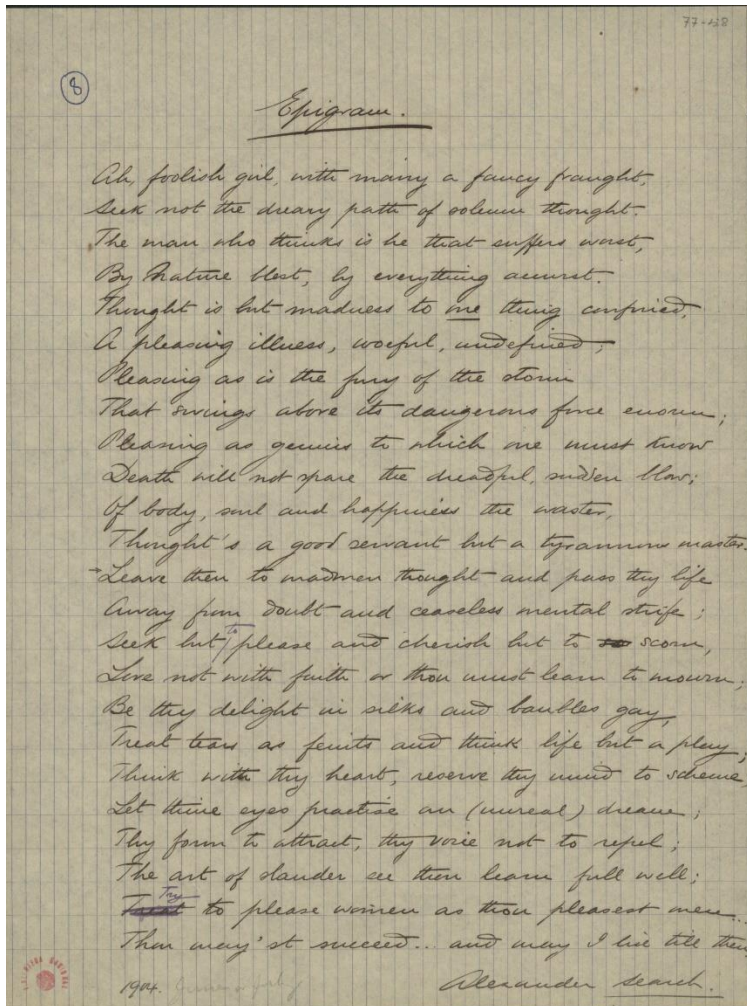 77-48
8
Epigram.
Ah, foolish girl, with many a fancy fraught,
Seek not the dreary path of solemn thought.
The man who thinks is he that suffers worst,
By Nature blest, by everything accurst.
Thought is but madness to one thing confined,
A pleasing illness, woeful, undefined;
Pleasing as is the fury of the storm
That swings above its dangerous force enorm;
Pleasing as genius to which one must know
Death will not spare the dreadful, sudden blow;
Of body, soul and happiness the waster,
Thought's a good servant but a tyrannous master.
→ Leave then to madmen thought and pass thy life
Away from doubt and ceaseless mental strife;
Seek but to please and cherish but to scorn,
Love not with faith or thou must learn to mourn;
Be thy delight in silks and baubles gay,
Treat tears as feints and think life but a play;
Think with thy heart, reserve thy mind to scheme,
Let thine eyes practise an (unreal) dream;
Thy form to attract, thy voice not to repel;
The art of slander see then learn full well;
Try to please women as thou pleasest men...
Thou may'st succeed... and may I live till then.
1904.
Alexander Search.